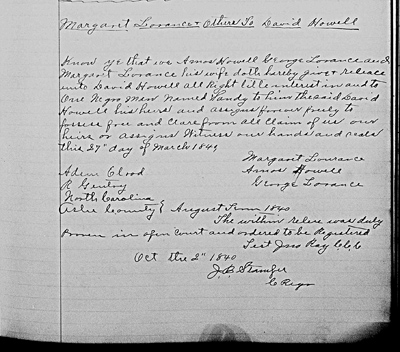 Margaret Lorance & Others To David Howell
Know ye that we Amos Howell George Lorance and
Margaret Lorance his wife doth hereby give & release
unto David Howell all Right title interest in and to
One Negro Man Named Sandy to him the said David
Howell his heirs and assigns forever freely to
possess free and clare from all claim of us our
heirs or assigns Witness our hands and seals
this 27" day of March 1840
Margaret Lowrance
Adem Clood Amos Howell
R Gentry George Lorance
North Carolina
Ashe County } August Term 1840
The within relese was duly
Proven in open Court and ordered to be Registered
Test Jno Ray C.C.C
Oct the 2" 1840
J.B. Stamper
C Regr